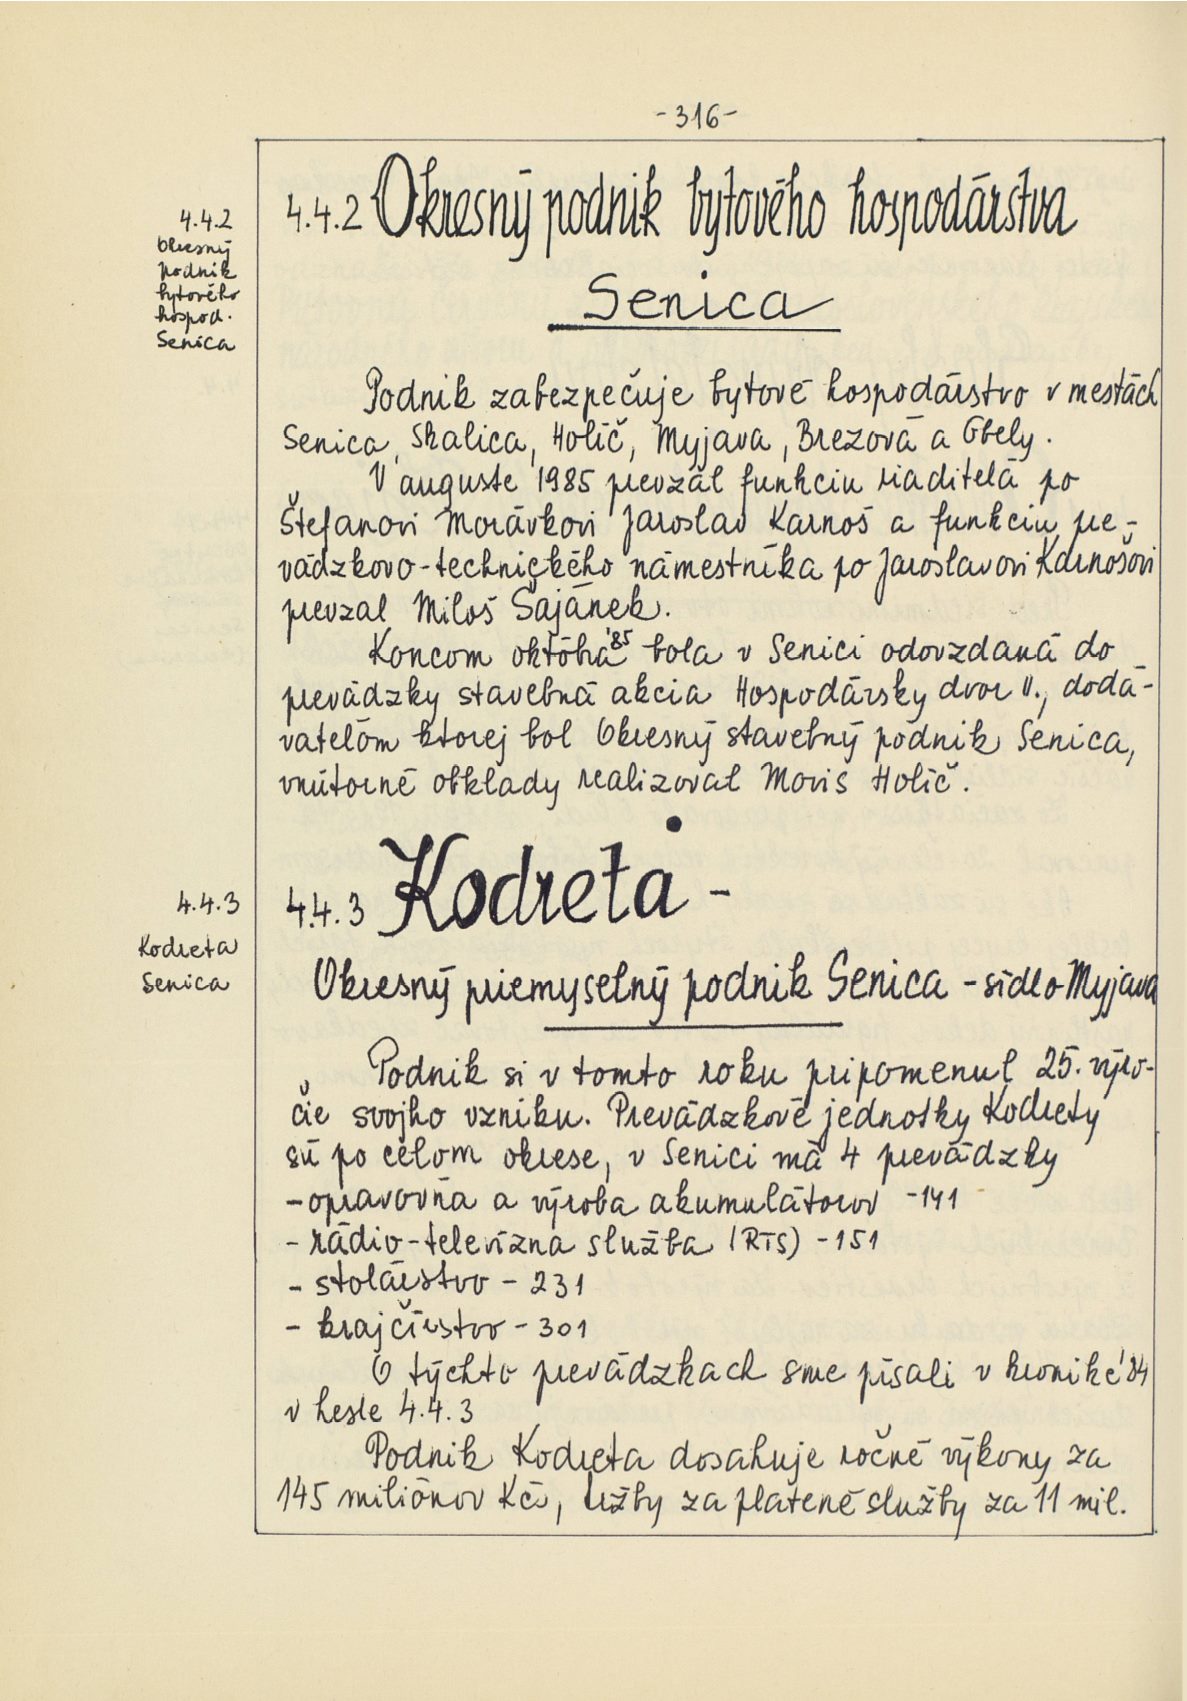 -316-
4.4.2
Okresný
podnik
bytového
hospod.
Senica
4.4.2 Okresný podnik bytového hospodárstva
Senica
Podnik zabezpečuje bytové hospodárstvo v mestách
Senica, Skalica, Holíč, Myjava, Brezová a Gbely.
V auguste 1985 prevzal funkciu riaditeľa po
Štefanovi Morávkovi Jaroslav Karnoš a funkciu pre-
vádzkovo-technického námestníka po Jaroslavovi Karnošovi
prevzal Miloš Šajánek.
Koncom októbra '85 bola v Senici odovzdaná do
prevádzky stavebná akcia Hospodársky dvor II., dodá-
vateľom ktorej bol Okresný stavebný podnik Senica,
vnútorné obklady realizoval Moris Holíč.
4.4.3
Kodreta
Senica
4.4.3 Kodreta -
Okresný priemyselný podnik Senica - sídlo Myjava
Podnik si v tomto roku pripomenul 25. výro-
čie svojho vzniku. Prevádzkové jednotky Kodrety
sú po celom okrese, v Senici má 4 prevádzky
- opravovňa a výroba akumulátorov - 141
- rádio-televízna služba (RTS) - 151
- stolárstvo - 231
- krajčírstvo - 301
O týchto prevádzkach sme písali v kronike '84
v hesle 4.4.3
Podnik Kodreta dosahuje ročné výkony za
145 miliónov Kčs, tržby za platené služby za 11 mil.